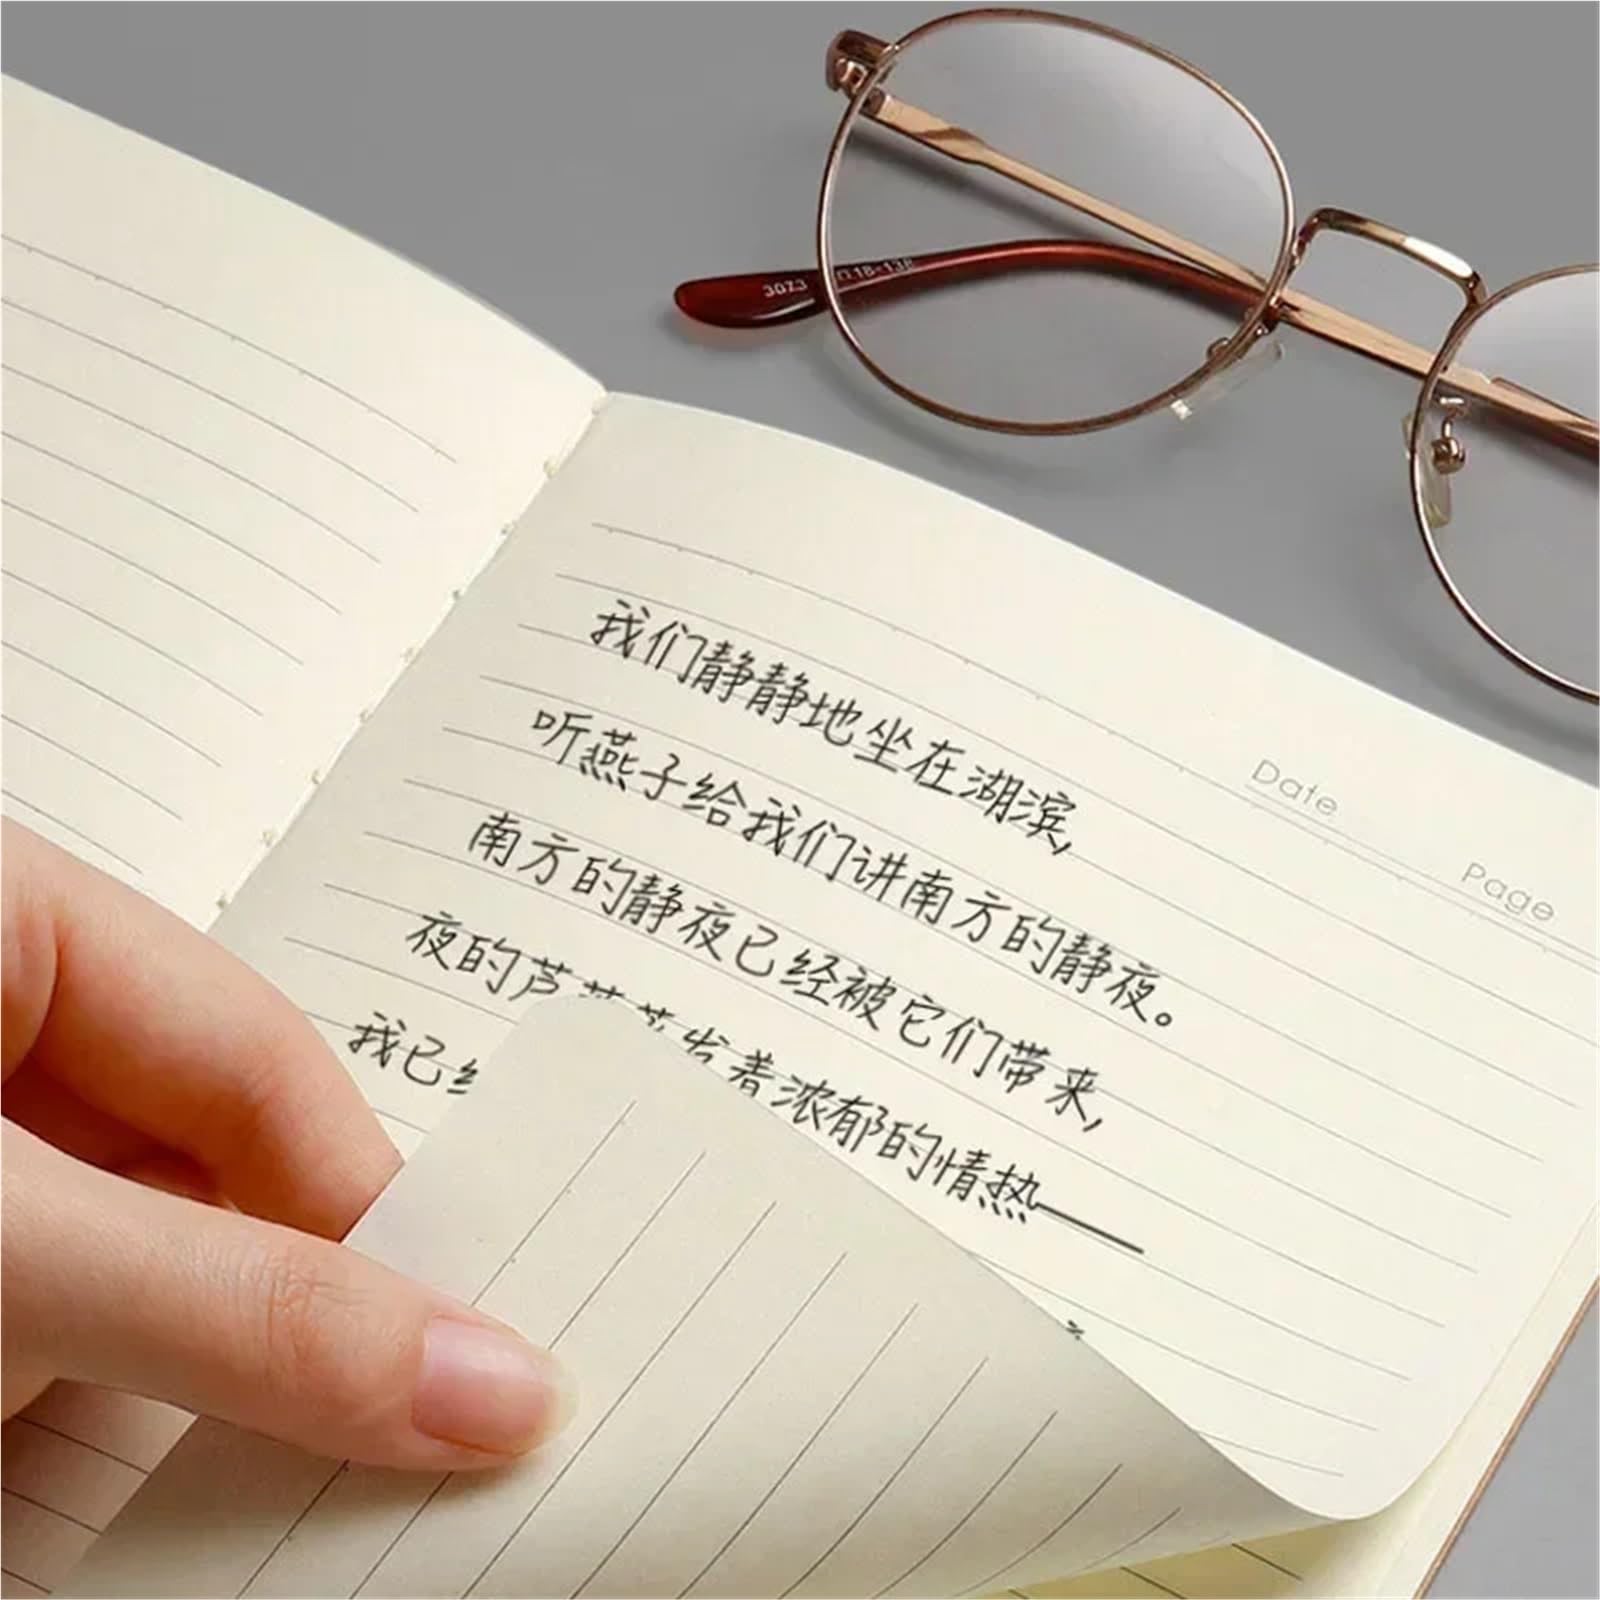 3073 18-138
Date
Page
我们静静地坐在湖滨,
听燕子给我们讲南方的静夜。
南方的静夜已经被它们带来,
夜的芦 发着浓郁的情热——
我已